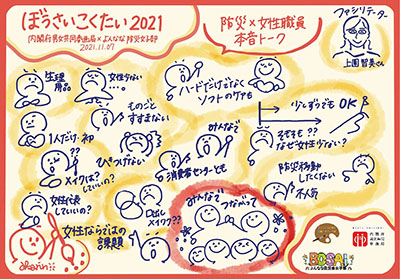 ぼうさいこくたい2021
内閣府男女共同参画局×よんなな防災女子部
2021.11.07
防災×女性職員
本音トーク
ファシリテーター
上園智美さん
生理
用品
女性少ない
…。
ものごと
すすまない
1人だけ・初
メイクは??
していいの?
ぴっけない
女性代表
していいの?
女性ならではの
課題
ハードだけでなく
ソフトのケアも
みんなで
消費者センターとも
ロぱし
メイクワク??
みんなで
つながって
少しずつでもOK
そもそも??
なぜ女性少ない?
防災移動
したくない
不人気
BOSAI